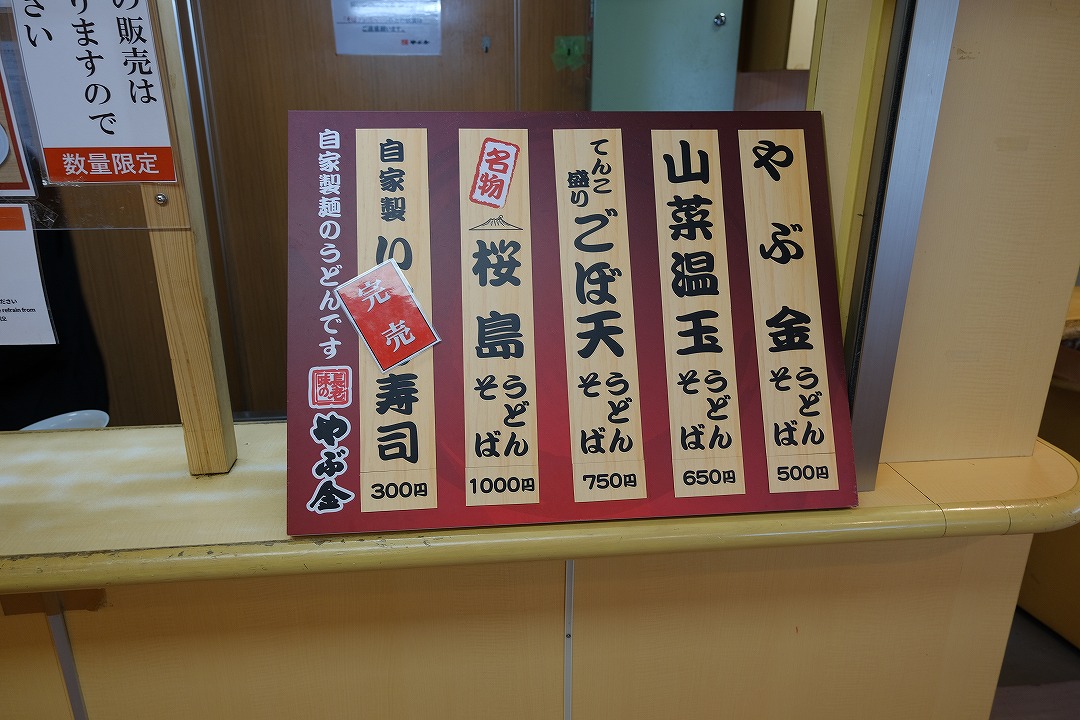 の販売は
りますので
さい
数量限定
ださい
refrain from
やぶ金
うどん
そば
500円
山菜温玉
うどん
そば
650円
てんこ
盛り
ごぼ天
うどん
そば
750円
名物
桜島
うどん
そば
1000円
自家製
い
寿司
300円
完売
自家製麺のうどんです
味の
長老
やぶ金